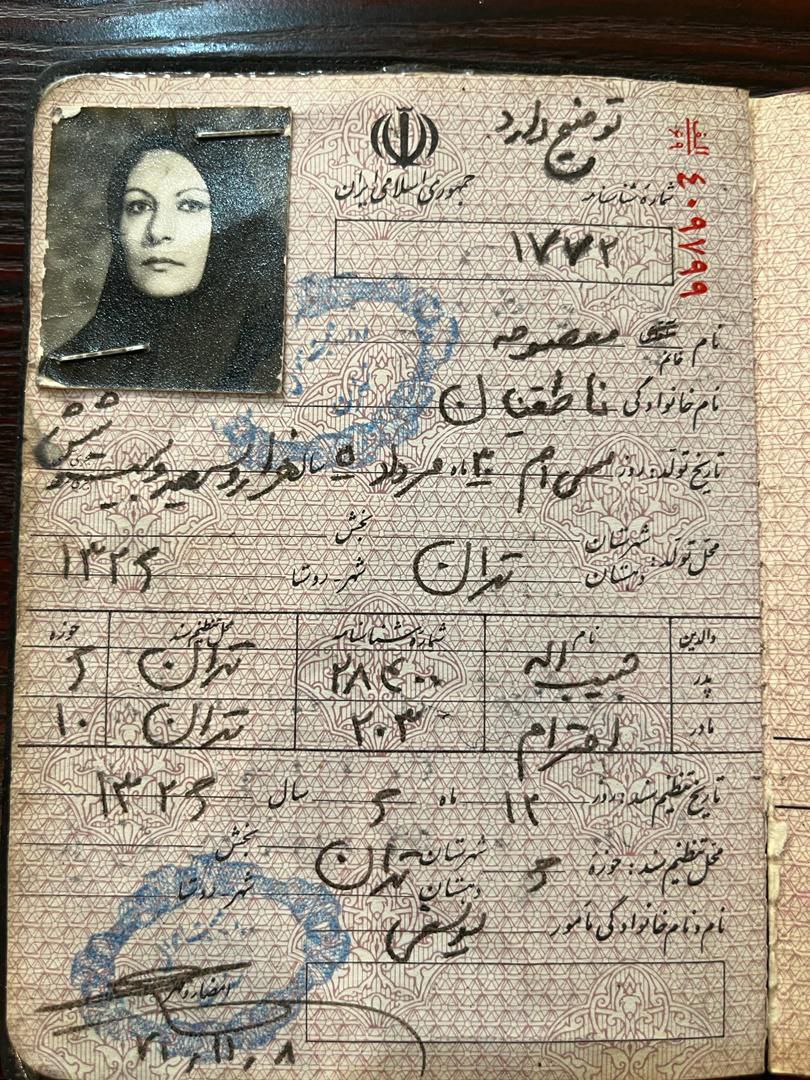 توضیح دارد
الف
۶۹
٤٠٩٧٩٩
جمهوری اسلامی ایران
شماره شناسنامه
۱۷۷۲
نام خانم معصومه
نام خانوادگی ناطقیان
تاریخ تولد: روز سی ام ماه مرداد ۵ سال هزار و سیصد و بیست و شش
محل تولد: شهرستان دهستان تهران بخش شهر-روستا ۱۳۲۶
والدین نام شماره شناسنامه محل تنظیم سند حوزه
پدر حبیب اله ۲۸۴۰۰ تهران ۶
مادر احترام ۲۰۳ تهران ۱۰
تاریخ تنظیم سند: روز ۱۲ ماه ۶ سال ۱۳۲۶
محل تنظیم سند: حوزه ۶ شهرستان دهستان تهران بخش شهر-روستا
نام و نام خانوادگی مأمور
امضاء و مهر
۷۱,۱۱,۸